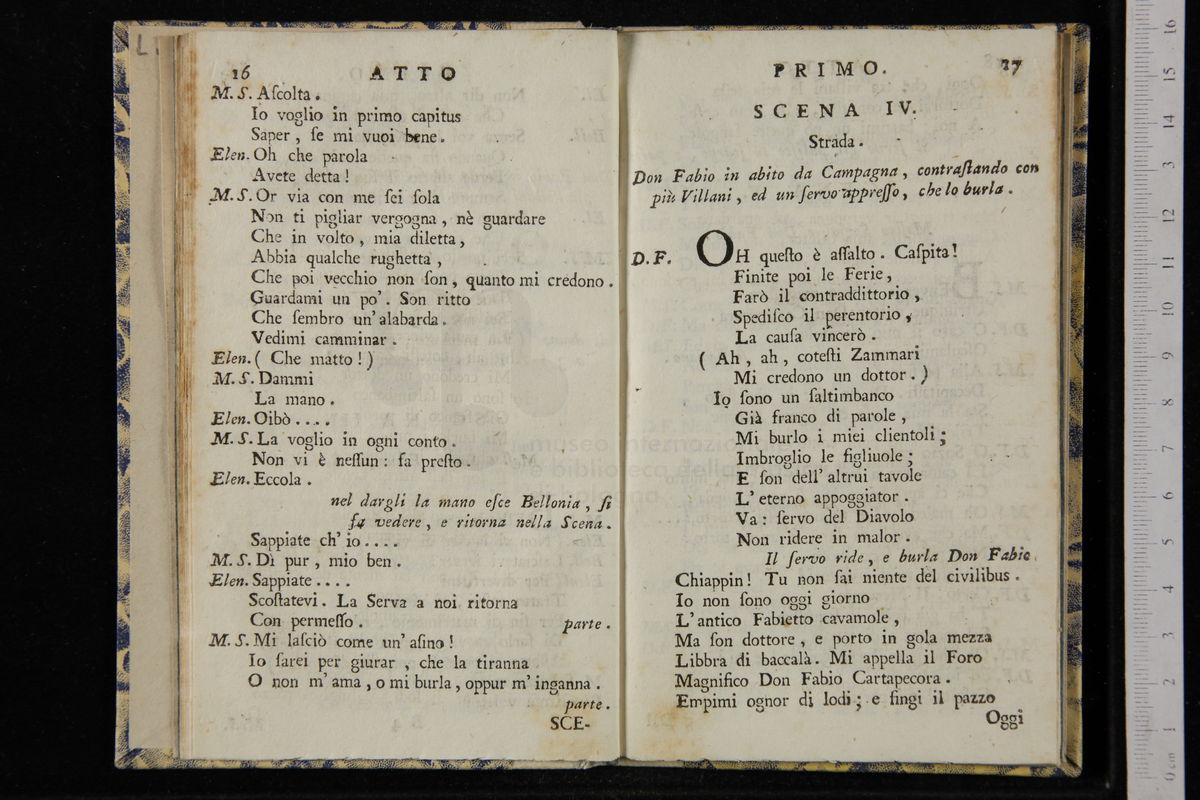 L.
16 ATTO
M. S. Aſcolta.
Io voglio in primo capitus
Saper, ſe mi vuoi bene.
Elen. Oh che parola
Avete detta!
M. S. Or via con me ſei ſola
Non ti pigliar vergogna, nè guardare
Che in volto, mia diletta,
Abbia qualche rughetta,
Che poi vecchio non ſon, quanto mi credono.
Guardami un po'. Son ritto
Che ſembro un' alabarda.
Vedimi camminar.
Elen. ( Che matto! )
M. S. Dammi
La mano.
Elen. Oibò....
M. S. La voglio in ogni conto.
Non vi è neſſun: fa preſto.
Elen. Eccola.
nel dargli la mano eſce Bellonia, ſi
fa vedere, e ritorna nella Scena.
Sappiate ch' io....
M. S. Dì pur, mio ben.
Elen. Sappiate....
Scoſtatevi. La Serva a noi ritorna
Con permeſſo. parte.
M. S. Mi laſciò come un' aſino!
Io ſarei per giurar, che la tiranna
O non m' ama, o mi burla, oppur m' inganna.
parte.
SCE-
PRIMO. 17
SCENA IV.
Strada.
Don Fabio in abito da Campagna, contraſtando con
più Villani, ed un ſervo appreſſo, che lo burla.
D. F. OH queſto è aſſalto. Caſpita!
Finite poi le Ferie,
Farò il contraddittorio,
Spediſco il perentorio,
La cauſa vincerò.
( Ah, ah, coteſti Zammari
Mi credono un dottor. )
Io ſono un ſaltimbanco
Già franco di parole,
Mi burlo i miei clientoli;
Imbroglio le figliuole;
E ſon dell' altrui tavole
L' eterno appoggiator.
Va: ſervo del Diavolo
Non ridere in malor.
Il ſervo ride, e burla Don Fabio
Chiappin! Tu non ſai niente del civilibus.
Io non ſono oggi giorno
L' antico Fabietto cavamole,
Ma ſon dottore, e porto in gola mezza
Libbra di baccalà. Mi appella il Foro
Magnifico Don Fabio Cartapecora.
Empimi ognor di lodi; e fingi il pazzo
Oggi
museo internazio
e biblioteca della mu
0 cm 1 2 3 4 5 6 7 8 9 10 11 12 13 14 15 16